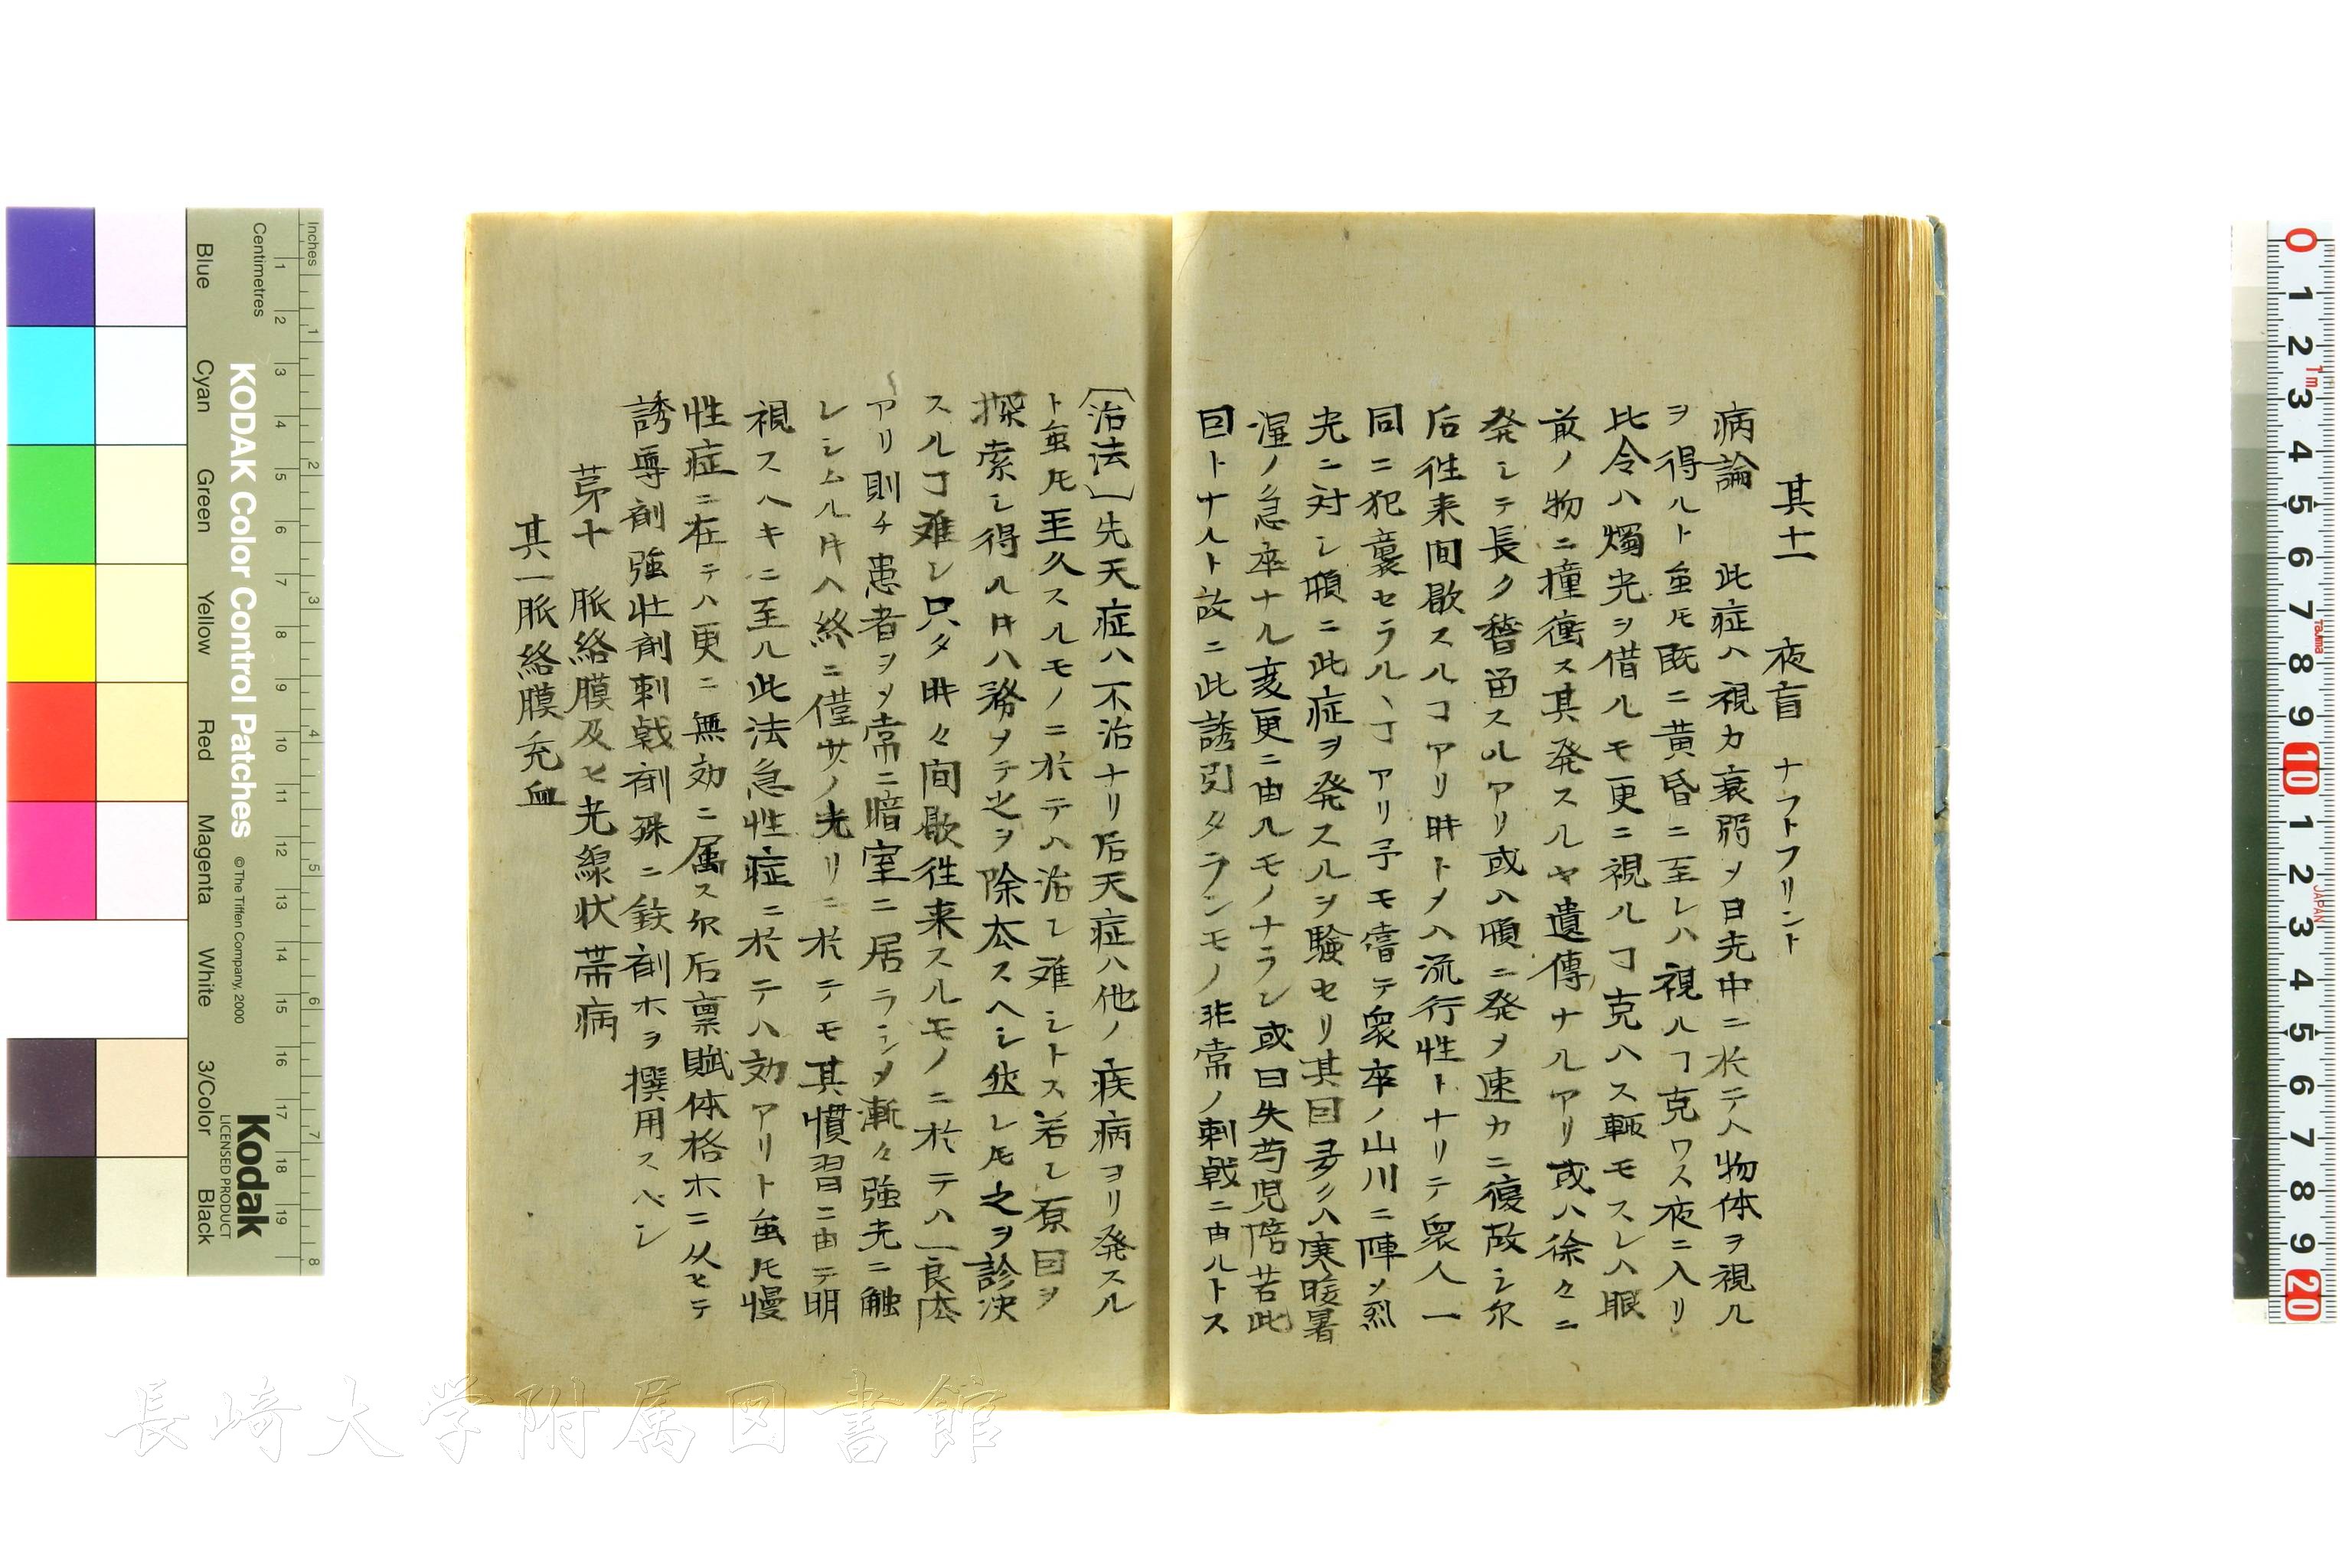 其十一　夜盲　ナフトフリント
病論　此症ハ視力衰弱ヲ日光中ニ於テハ物体ヲ視ル
ヲ得ルト虽𪜈既ニ黄昏ニ至レハ視ルヿ克ワス夜ニ入リ
比令ハ燭光ヲ借ルモ更ニ視ルヿ克ハス輙モスレハ眼
前ノ物ニ撞衝ス其発スルヤ遺傳ナルアリ或ハ徐々ニ
発シテ長ク稽留スルアリ或ハ頓ニ発メ速カニ復故シ尓
后徃来間歇スルコアリ時トメハ流行性トナリテ衆人一
同ニ犯襄セラルヽヿアリ予モ嘗テ衆卒ノ山川ニ陣ソ烈
光ニ対シ頓ニ此症ヲ発スルヲ験セリ其因多クハ寒暖暑
湿ノ急卒ナル変更ニ由ルモノナラン或曰失苟児陪苦此
因トナルト故ニ此誘引タランモノ非常ノ刺戟ニ由ルトス
〔治法〕先天症ハ不治ナリ后天症ハ他ノ疾病ヨリ発スル
ト虽𪜈至久スルモノニ於テハ治シ难シトス若シ原因ヲ
探索シ得ル𪜈ハ務メテ之ヲ除去スヘシ然レ𪜈之ヲ診决
スルヿ难シ只タ時々間歇徃来スルモノニ於テハ一良法
アリ則チ患者ヲメ常ニ暗室ニ居ラシメ漸々強光ニ触
レシムル𪜈ハ終ニ僅少ノ光リニ於テモ其慣習ニ由テ明
視スヘキニ至ル此法急性症ニ於テハ効アリト虽𪜈慢
性症ニ在テハ更ニ無効ニ属ス尓后禀賦体格ホニ从ヒテ
誘導剤強壮剤刺戟剤殊ニ鉄剤ホヲ撰用スベシ
苐十　脈絡膜及ヒ光線状帯病
其一脈絡膜充血
Inches
Centimetres
KODAK Color Control Patches
© The Tiffen Company, 2000
Kodak
LICENSED PRODUCT
Blue
Cyan
Green
Yellow
Red
Magenta
White
3/Color
Black
長崎大学附属図書館